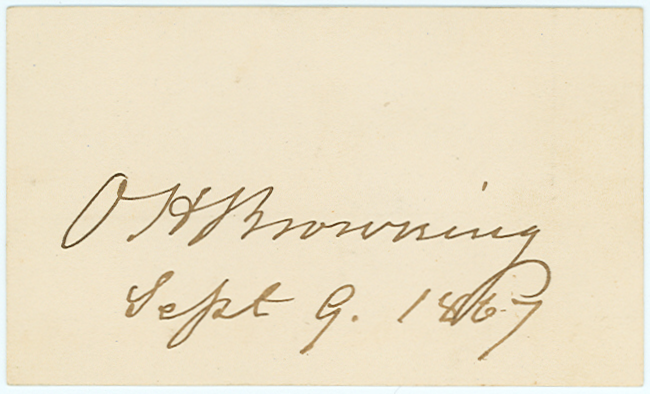 O H Browning
Sept 9. 1867